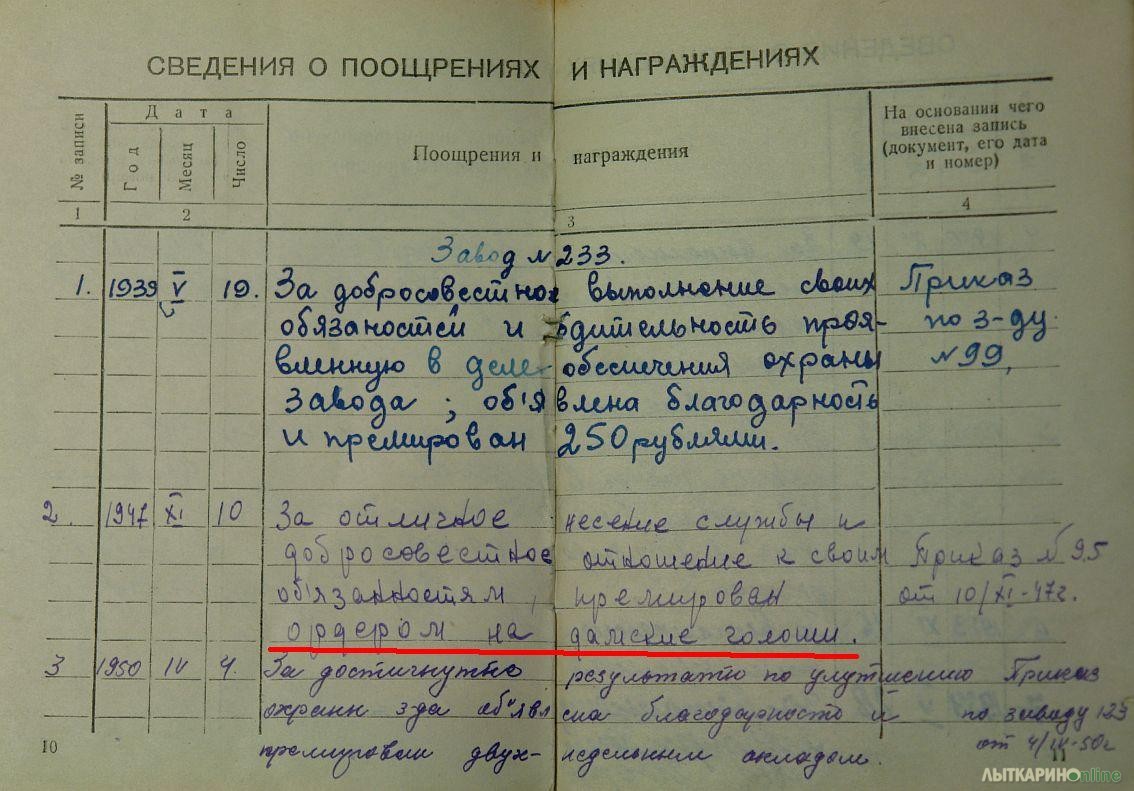 СВЕДЕНИЯ О ПООЩРЕНИЯХ И НАГРАЖДЕНИЯХ
№ записи
Дата
Год
Месяц
Число
Поощрения и награждения
На основании чего
внесена запись
(документ, его дата
и номер)
1 2 3 4
Завод № 233.
1. 1939 V 19. За добросовестное выполнение своих Приказ
обязаностей и бдительность проя- по з-ду.
вленную в деле обеспечения охраны № 99,
завода; об'явлена благодарность
и премирован 250 рублями.
2. 1947 XI 10 За отличное несение службы и
добросовестное отношение к своим Приказ № 95
об'язанностям, премирован от 10/XI-47г.
ордером на дамские голоши.
3 1950 IV 4. За достигнутые результаты по улутшению Приказ
охраны з-да об'явлена благодарность и по заводу 123
премирован двух-недельным окладом. от 4/IV-50г
10 11
ЛЫТКАРИНОonline